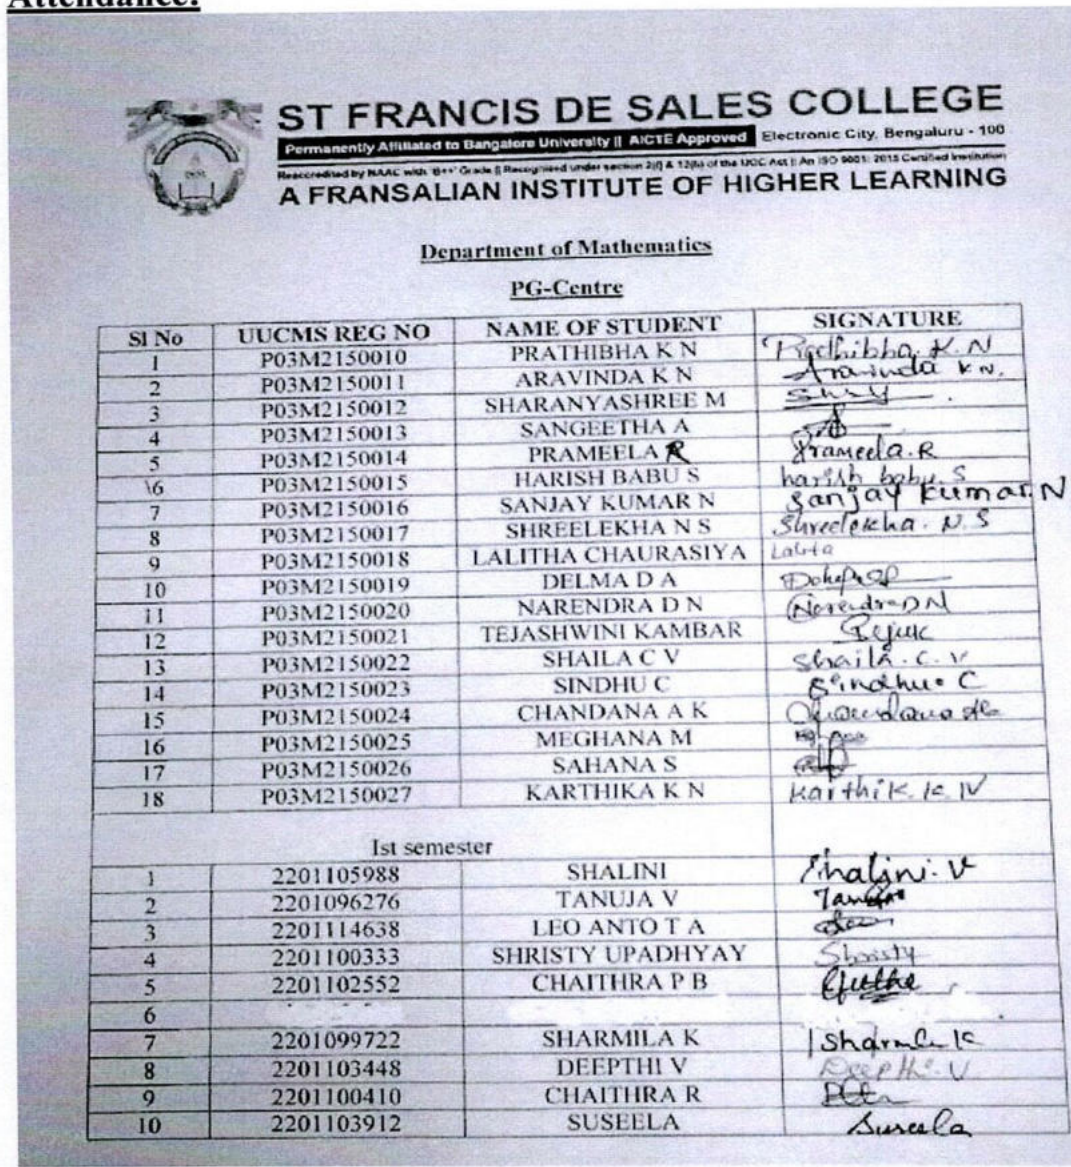 Attendance:
ST FRANCIS DE SALES COLLEGE
Permanently Affiliated to Bangalore University || AICTE Approved Electronic City, Bengaluru - 100
Reaccredited by NAAC with 'B++' Grade || Recognised under section 2(f) & 12(B) of the UGC Act || An ISO 9001: 2015 Certified Institution
A FRANSALIAN INSTITUTE OF HIGHER LEARNING
Department of Mathematics
PG-Centre
Sl No UUCMS REG NO NAME OF STUDENT SIGNATURE
1 P03M2150010 PRATHIBHA K N Prathibha K.N
2 P03M2150011 ARAVINDA K N Aravinda K N.
3 P03M2150012 SHARANYASHREE M
4 P03M2150013 SANGEETHA A
5 P03M2150014 PRAMEELA R Prameela.R
\6 P03M2150015 HARISH BABU S harish babu.S
7 P03M2150016 SANJAY KUMAR N Sanjay Kumar.N
8 P03M2150017 SHREELEKHA N S Shreelekha. N.S
9 P03M2150018 LALITHA CHAURASIYA Lalita
10 P03M2150019 DELMA D A
11 P03M2150020 NARENDRA D N Narendra DN
12 P03M2150021 TEJASHWINI KAMBAR
13 P03M2150022 SHAILA C V Shaila.C.V
14 P03M2150023 SINDHU C Sindhu C
15 P03M2150024 CHANDANA A K
16 P03M2150025 MEGHANA M
17 P03M2150026 SAHANA S
18 P03M2150027 KARTHIKA K N Karthik.K.N
Ist semester
1 2201105988 SHALINI Shalini.V
2 2201096276 TANUJA V
3 2201114638 LEO ANTO T A
4 2201100333 SHRISTY UPADHYAY Shristy
5 2201102552 CHAITHRA P B
6
7 2201099722 SHARMILA K
8 2201103448 DEEPTHI V Deepthi.V
9 2201100410 CHAITHRA R
10 2201103912 SUSEELA Suseela